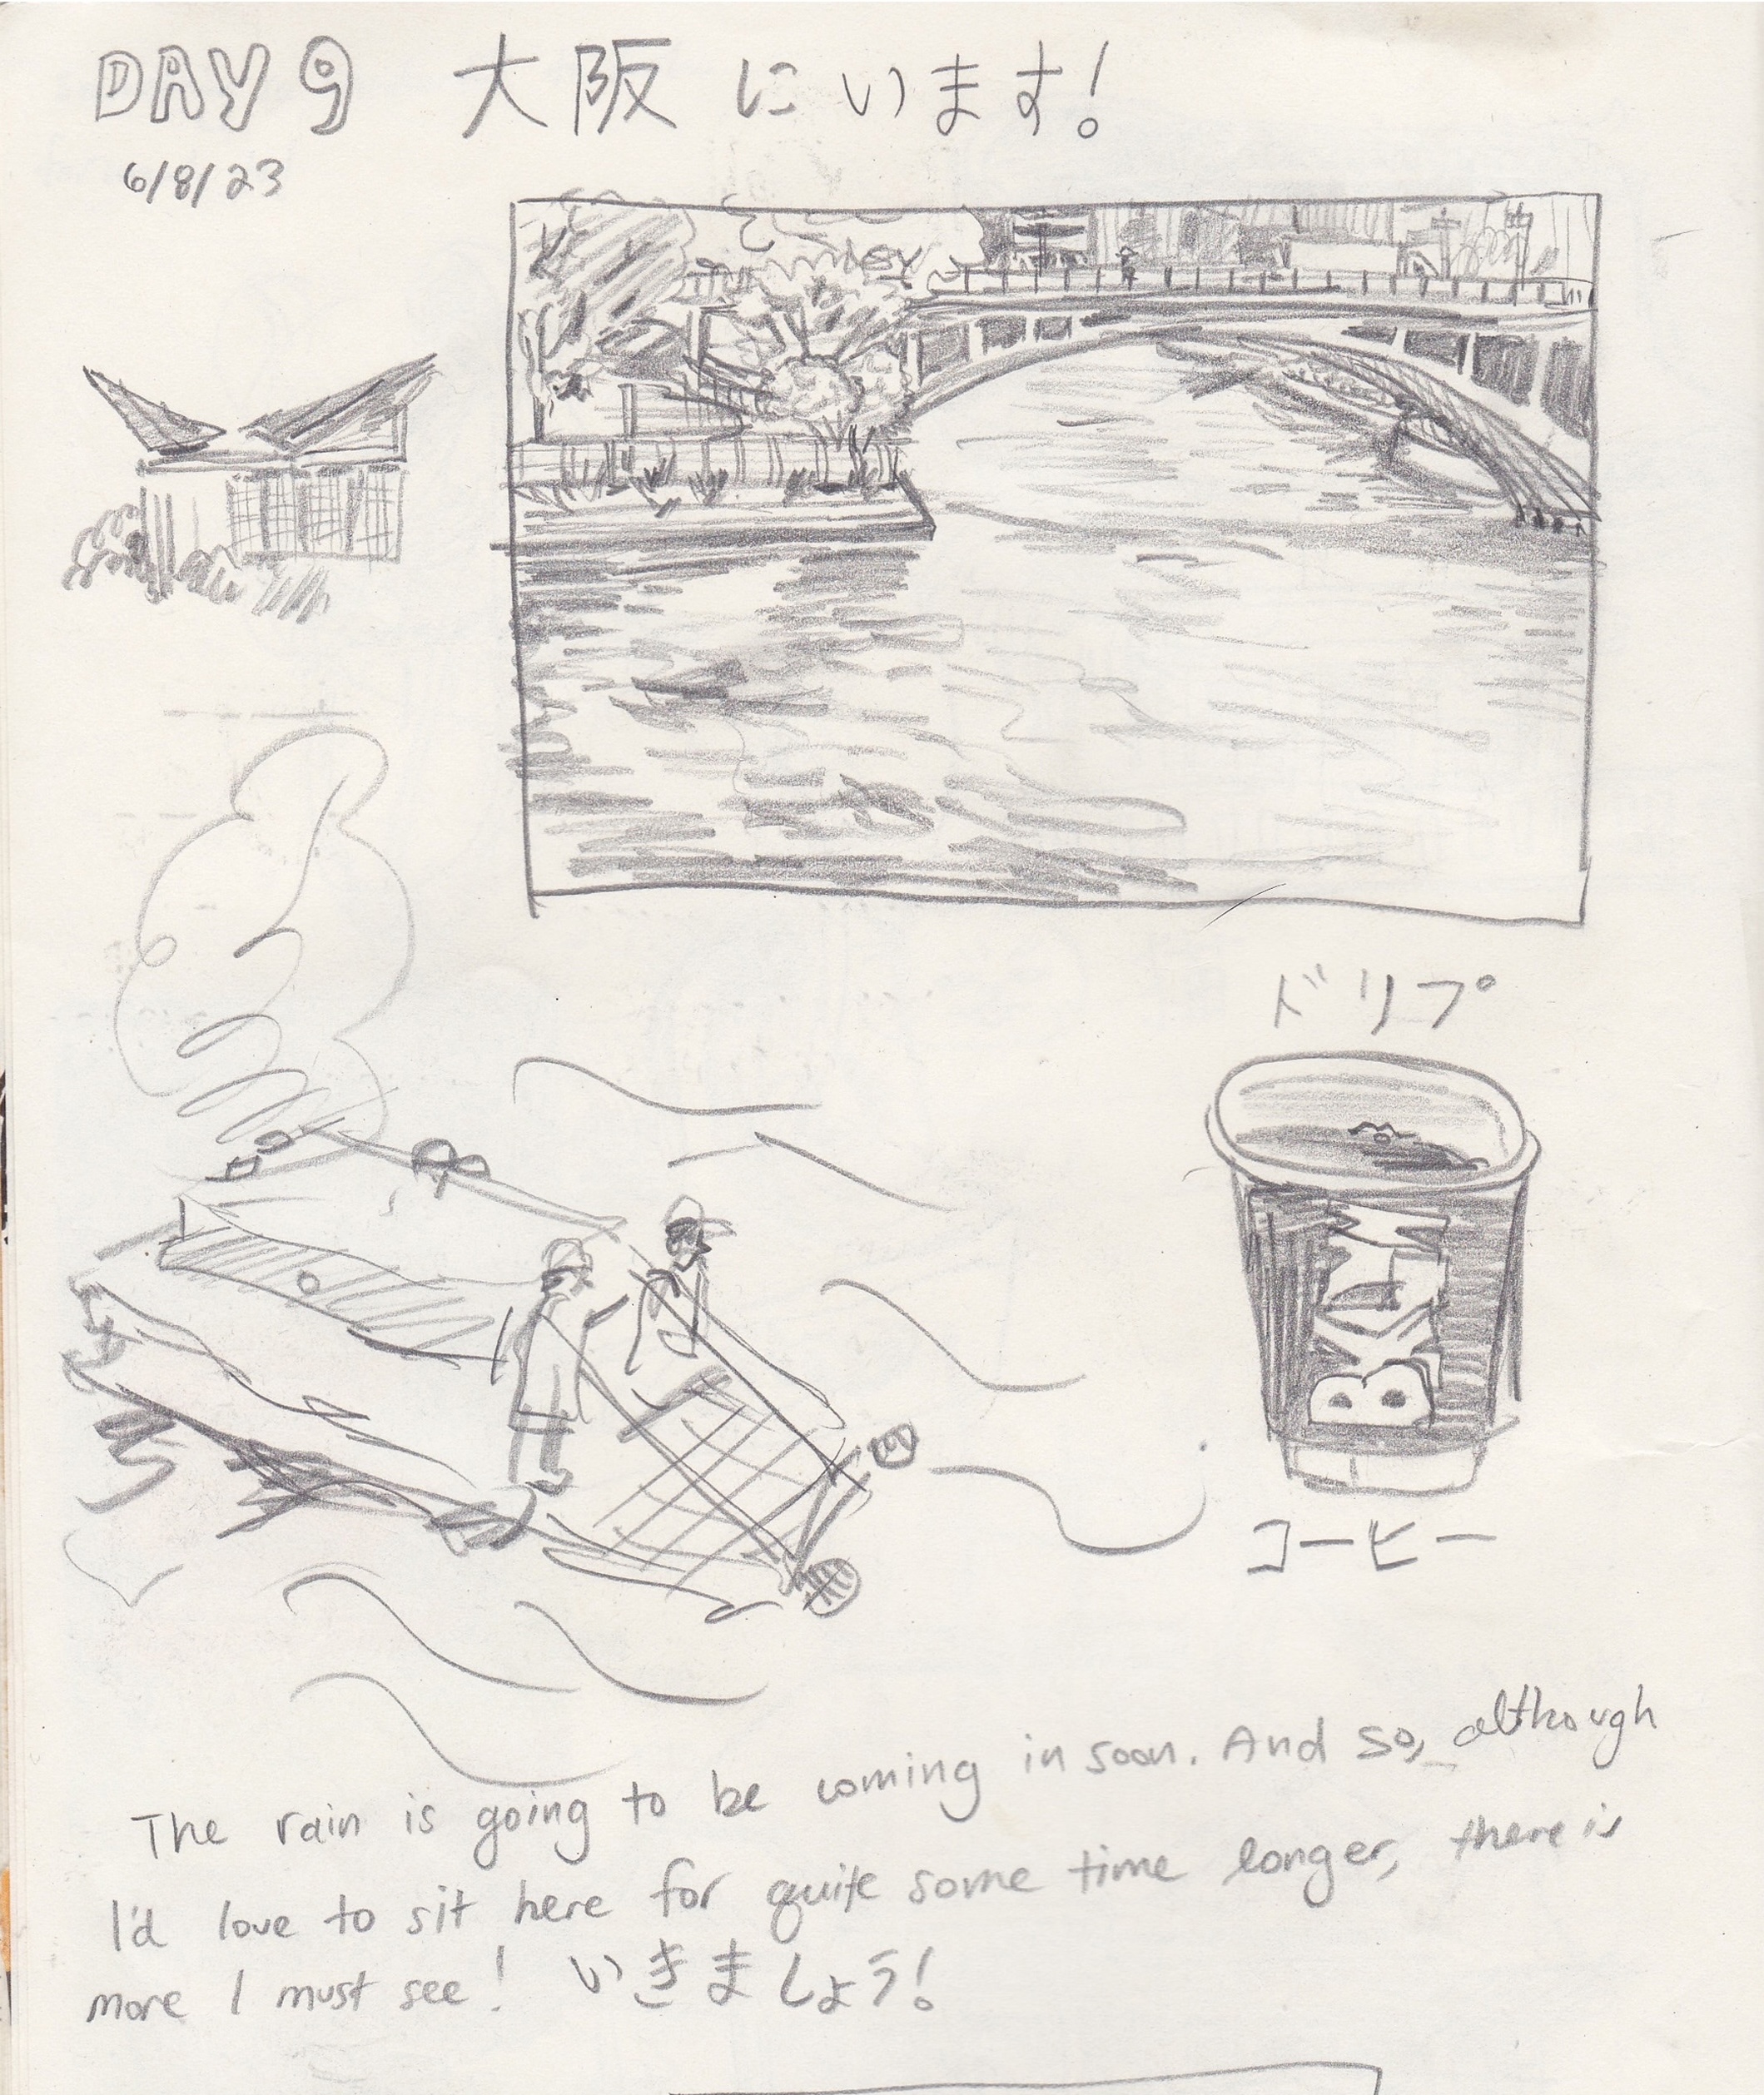 DAY 9 大阪にいます!
6/8/23
ドリプ
コーヒー
The rain is going to be coming in soon. And so, although
I'd love to sit here for quite some time longer, there is
more I must see! いきましょう!